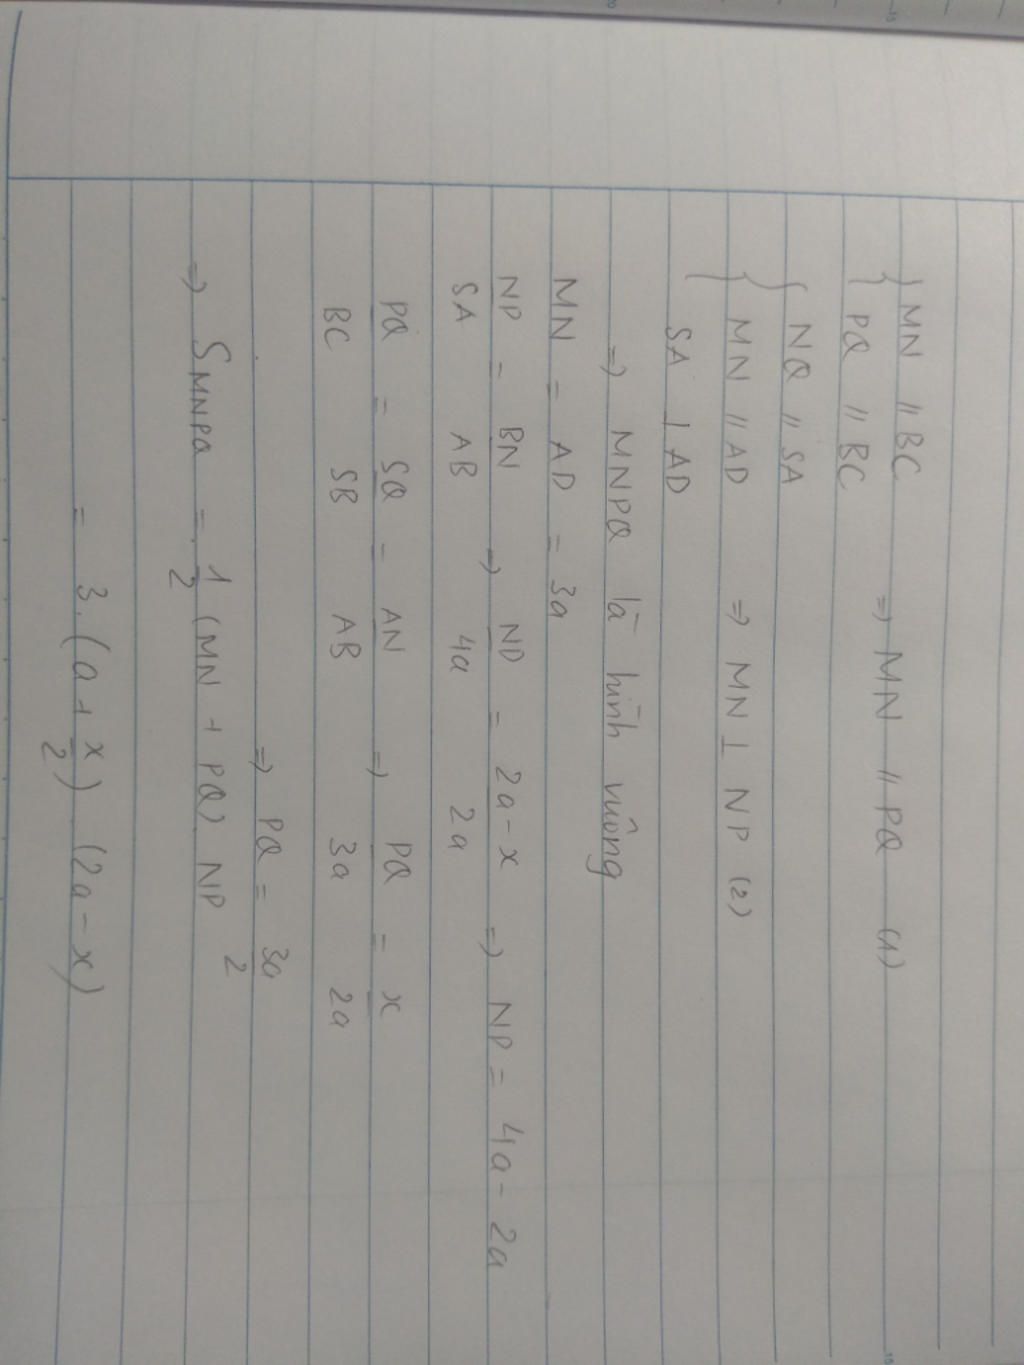 { MN // BC
{ PQ // BC ⇒ MN // PQ (1)
{ NQ // SA
{ MN // AD ⇒ MN ⊥ NP (2)
{ SA ⊥ AD
⇒ MNPQ là hình vuông
MN = AD = 3a
NP/SA = BN/AB ⇒ ND/4a = 2a-x/2a ⇒ NP = 4a - 2a
PQ/BC = SQ/SB = AN/AB ⇒ PQ/3a = x/2a
⇒ PQ = 3a/2
⇒ SMNPQ = 1/2 (MN + PQ) NP
= 3. (a + x/2) (2a - x)